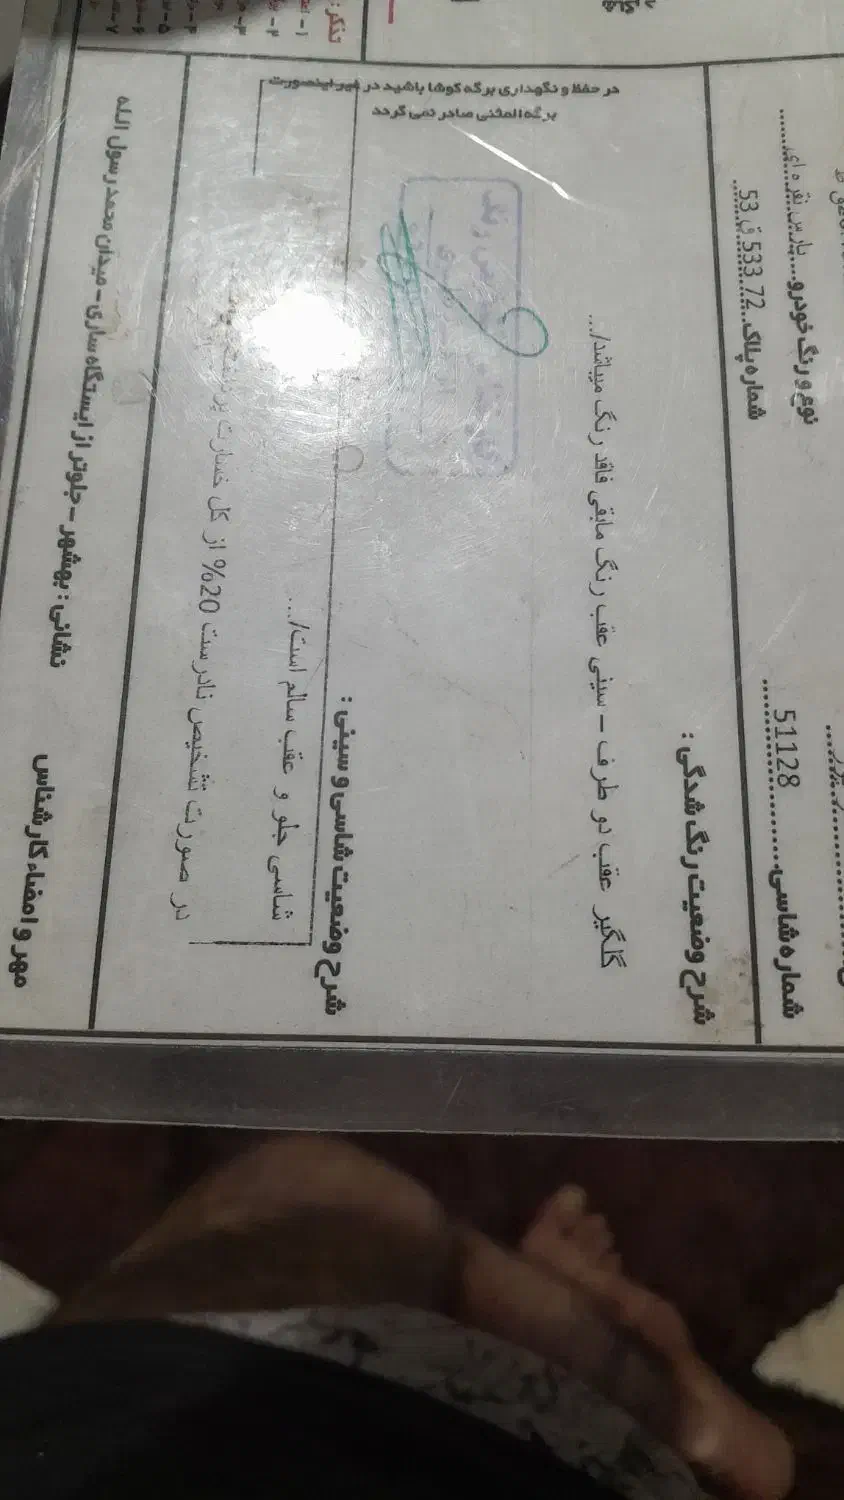 نوع و رنگ خودرو.....پارس نقره ای
شماره شاسی....51128
شماره پلاک..72 533 ق 53
شرح وضعیت رنگ شدگی :
گلگیر عقب دو طرف - سینی عقب رنگ مابقی فاقد رنگ میباشد/...
شرح وضعیت شاسی و سینی :
شاسی جلو و عقب سالم است/...
در صورت تشخیص نادرست 20% از کل خسارت
در حفظ و نگهداری برگه کوشا باشید در غیر اینصورت
برگه المثنی صادر نمی گردد
مهر و امضاء کارشناس
نشانی : بهشهر - جلوتر از ایستگاه ساری - میدان محمد رسول الله
تذکر :